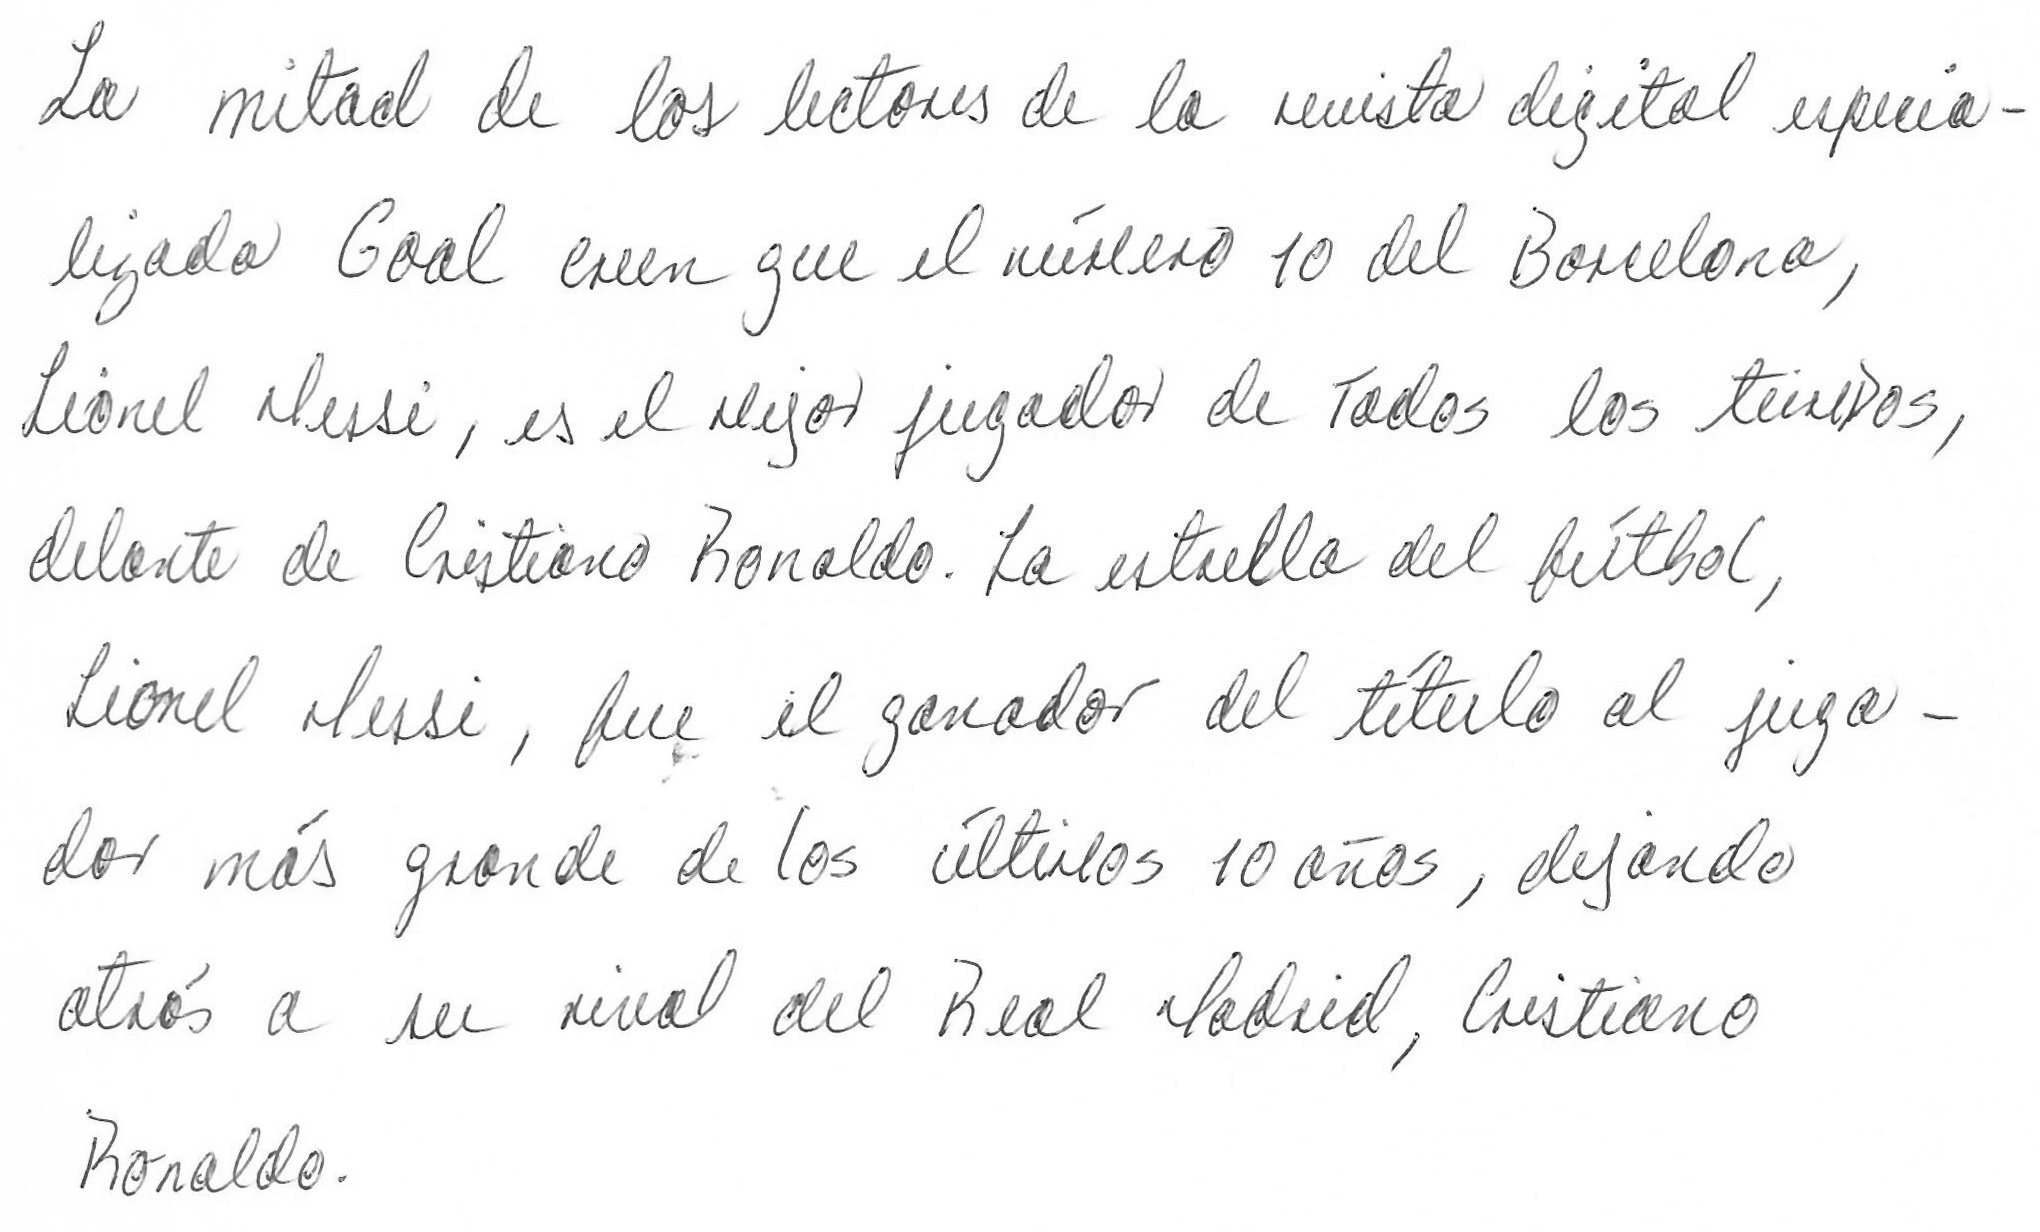 La mitad de los lectores de la revista digital especia-
lizada Goal creen que el número 10 del Barcelona,
Lionel Messi, es el mejor jugador de Todos los tiempos,
delante de Cristiano Ronaldo. La estrella del fútbol,
Lionel Messi, fue el ganador del título al juga-
dor más grande de los últimos 10 años, dejando
atrás a su rival del Real Madrid, Cristiano
Ronaldo.